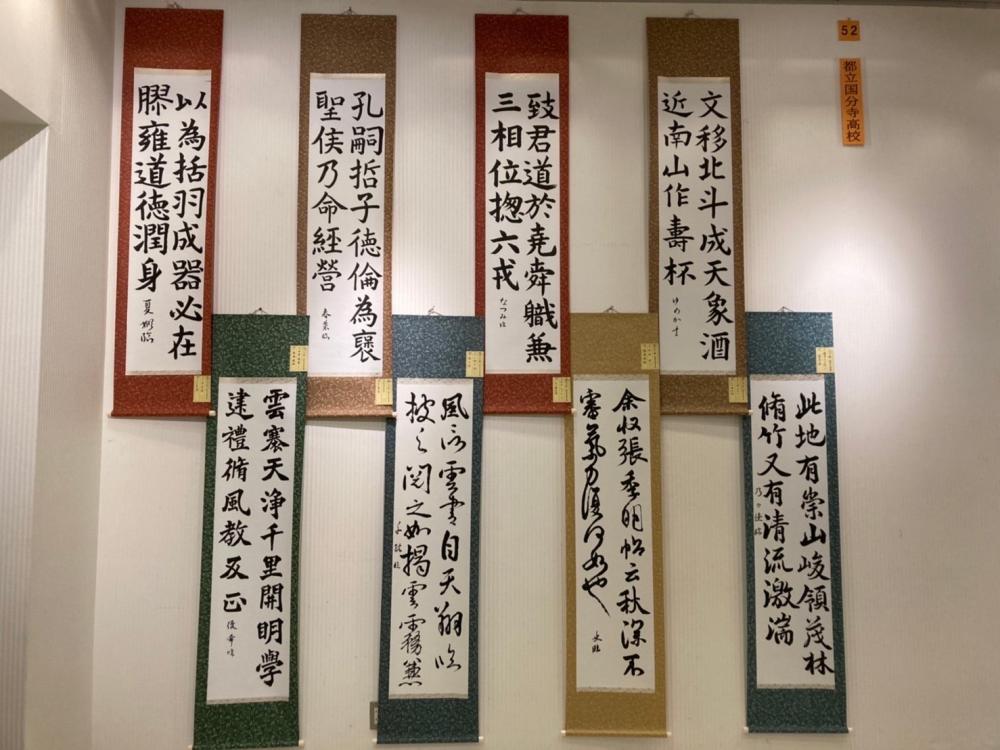 52
都立国分寺高校
文移北斗成天象酒
近南山作壽杯
致君道於堯舜職兼
三相位揔六戎
なつみ臨
孔嗣哲子徳倫為襃
聖侯乃命經營
以為括羽成器必在
膠雍道徳潤身
此地有崇山峻領茂林
脩竹又有清流激湍
余収張季明帖云秋深不
審氣力復何如也
風信雲書自天翔臨
披之閲之如掲雲霧兼
雲褰天浄千里開明學
建禮脩風教反正